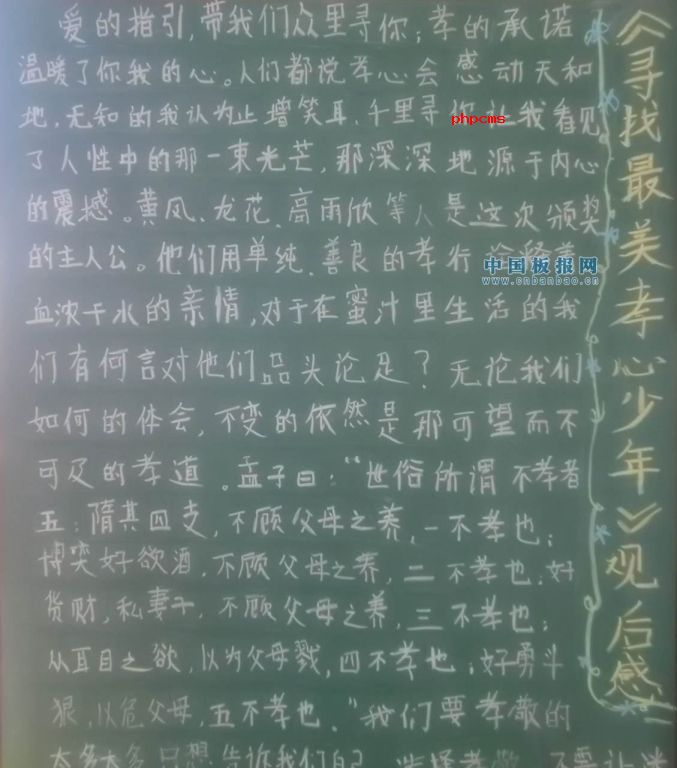 《寻找最美孝心少年》观后感
爱的指引，带我们众里寻你；孝的承诺
温暖了你我的心。人们都说孝心会感动天和
地，无知的我认为止增笑耳，千里寻你让我看见
phpcms
了人性中的那一束光芒，那深深地源于内心
的震撼。黄凤、龙花、高雨欣等人是这次颁奖
的主人公。他们用单纯、善良的孝行
中国板报网
www.cnbanbao.cn
血浓于水的亲情，对于在蜜汁里生活的我
们有何言对他们品头论足？无论我们
如何的体会，不变的依然是那可望而不
可及的孝道。孟子曰：“世俗所谓不孝者
五：隋其四支，不顾父母之养，一不孝也；
博奕好欲酒，不顾父母之养，二不孝也；好
货财，私妻子，不顾父母之养，三不孝也；
从耳目之欲，以为父母戮，四不孝也；好勇斗
狠，以危父母，五不孝也。”我们要孝敬的
太多太多只想告诉我们自己